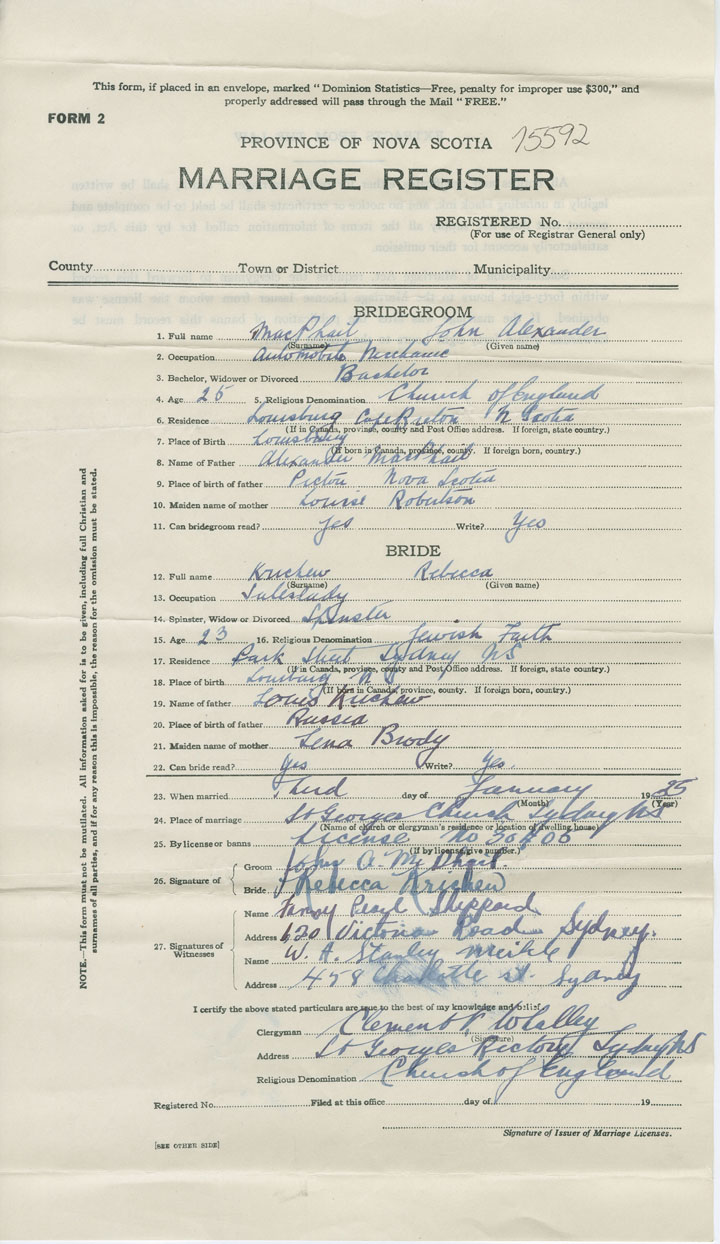 This form, if placed in an envelope, marked "Dominion Statistics—Free, penalty for improper use $300," and
properly addressed will pass through the Mail "FREE."
FORM 2
PROVINCE OF NOVA SCOTIA 15592
MARRIAGE REGISTER
REGISTERED No.
(For use of Registrar General only)
County Town or District Municipality
BRIDEGROOM
1. Full name MacPhail John Alexander
(Surname) (Given name)
2. Occupation Automobile Mechanic
3. Bachelor, Widower or Divorced Bachelor
4. Age 25 5. Religious Denomination Church of England
6. Residence Louisburg Cape Breton N Scotia
(If in Canada, province, county and Post Office address. If foreign, state country.)
7. Place of Birth Louisburg
(If born in Canada, province, county. If foreign born, country.)
8. Name of Father Alexander MacPhail
9. Place of birth of father Pictou Nova Scotia
10. Maiden name of mother Louise Robertson
11. Can bridegroom read? Yes Write? Yes
BRIDE
12. Full name Krichew Rebecca
(Surname) (Given name)
13. Occupation Saleslady
14. Spinster, Widow or Divorced Spinster
15. Age 23 16. Religious Denomination Jewish Faith
17. Residence Park Street Sydney NS
(If in Canada, province, county and Post Office address. If foreign, state country.)
18. Place of birth Louisburg N S
(If born in Canada, province, county. If foreign born, country.)
19. Name of father Louis Krichew
20. Place of birth of father Russia
21. Maiden name of mother Lena Brody
22. Can bride read? Yes Write? Yes.
23. When married Third day of January 1925
(Month) (Year)
24. Place of marriage St Georges Church Sydney NS
(Name of church or clergyman's residence or location of dwelling house)
25. By license or banns License No
(If by license, give number.)
26. Signature of Groom John A. McPhail.
Bride Rebecca Krichew
27. Signatures of Witnesses
Name Pearl Sheppard
Address 620 Victoria Road Sydney.
Name W. A. Stanley
Address 458 Charlotte st. Sydney
I certify the above stated particulars are true to the best of my knowledge and belief.
Clergyman Clement V. Whalley
(Signature)
Address St Georges Rectory Sydney NS
Religious Denomination Church of England
Registered No. Filed at this office day of 19
Signature of Issuer of Marriage Licenses.
[SEE OTHER SIDE]
NOTE.—This form must not be mutilated. All information asked for is to be given, including full Christian and
surnames of all parties, and if for any reason this is impossible, the reason for the omission must be stated.